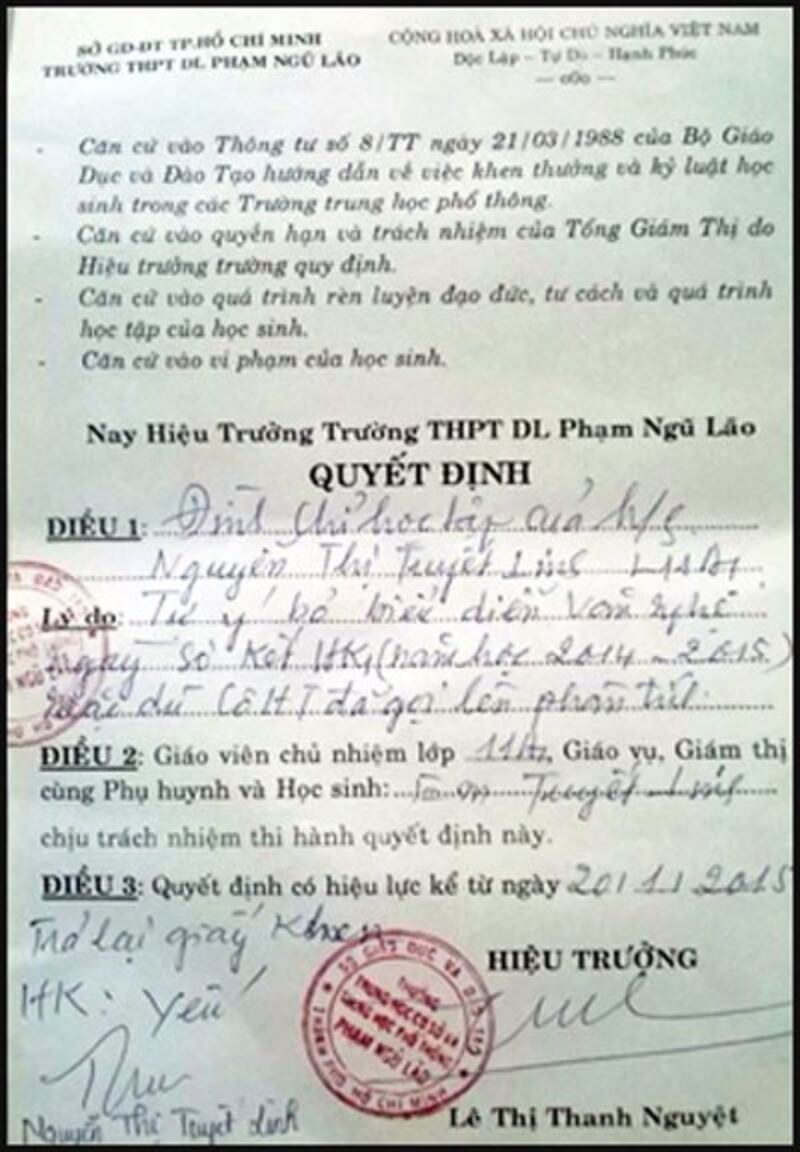 SỞ GD-ĐT TP.HỒ CHÍ MINH
TRƯỜNG THPT DL PHẠM NGŨ LÃO
CỘNG HOÀ XÃ HỘI CHỦ NGHĨA VIỆT NAM
Độc Lập – Tự Do – Hạnh Phúc
— o0o —
- Căn cứ vào Thông tư số 8/TT ngày 21/03/1988 của Bộ Giáo
Dục và Đào Tạo hướng dẫn về việc khen thưởng và kỷ luật học
sinh trong các Trường trung học phổ thông.
- Căn cứ vào quyền hạn và trách nhiệm của Tổng Giám Thị do
Hiệu trưởng trường quy định.
- Căn cứ vào quá trình rèn luyện đạo đức, tư cách và quá trình
học tập của học sinh.
- Căn cứ vào vi phạm của học sinh.
Nay Hiệu Trưởng Trường THPT DL Phạm Ngũ Lão
QUYẾT ĐỊNH
ĐIỀU 1: Đình chỉ học tập của h/s
Nguyễn Thị Tuyết Linh L11A1
Lý do: Tự ý bỏ biểu diễn văn nghệ
ngày sơ kết HK1 (năm học 2014 - 2015)
mặc dù Cô HT đã gọi lên phân tích.
ĐIỀU 2: Giáo viên chủ nhiệm lớp 11A1, Giáo vụ, Giám thị
cùng Phụ huynh và Học sinh: Tuyết Linh
chịu trách nhiệm thi hành quyết định này.
ĐIỀU 3: Quyết định có hiệu lực kể từ ngày 20/1/2015
Trả lại giấy khen
HK: Yếu
HIỆU TRƯỞNG
SỞ GIÁO DỤC VÀ ĐÀO TẠO
TRƯỜNG
TRUNG HỌC CƠ SỞ VÀ
TRUNG HỌC PHỔ THÔNG
PHẠM NGŨ LÃO
THÀNH PHỐ HỒ CHÍ MINH
Nguyễn Thị Tuyết Linh
Lê Thị Thanh Nguyệt